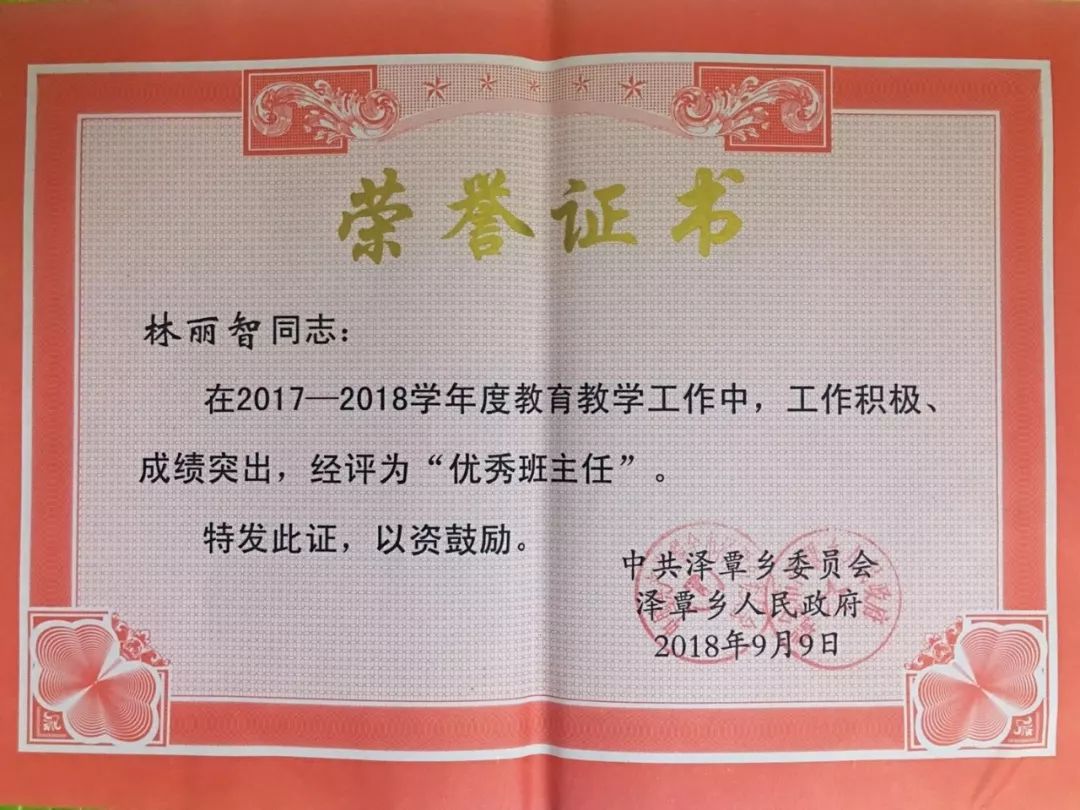 荣誉证书
林丽智同志：
在2017—2018学年度教育教学工作中，工作积极、
成绩突出，经评为“优秀班主任”。
特发此证，以资鼓励。
中共泽覃乡委员会
泽覃乡人民政府
2018年9月9日